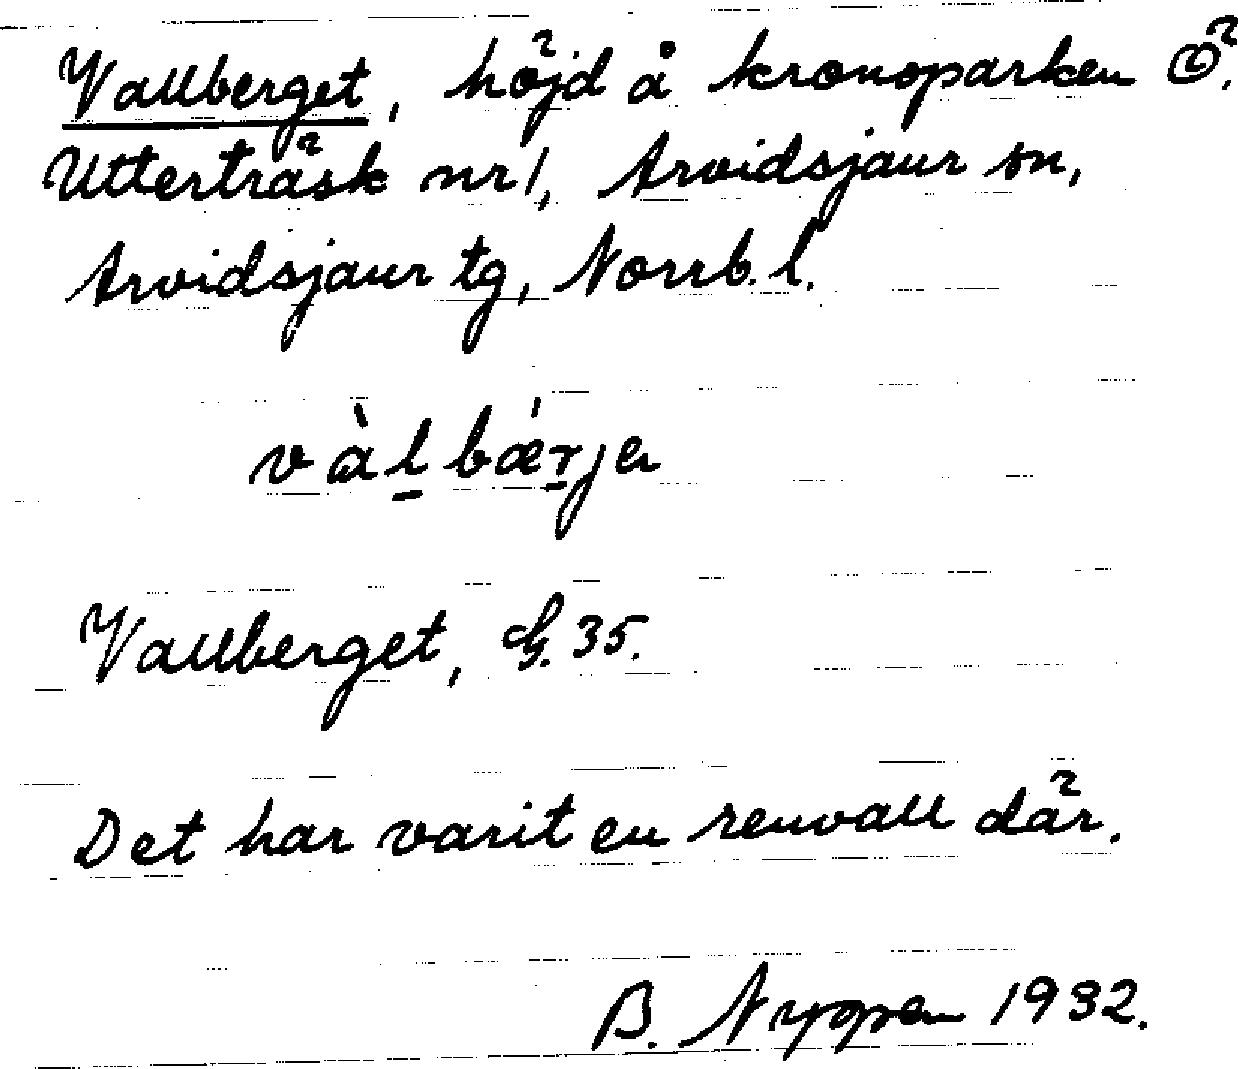 Vallberget, höjd å kronoparken Ö.
Utterträsk nr 1, Arvidsjaur sn,
Arvidsjaur tg, Norrb. l.
vàḻbǽṟje
Vallberget, G. 35.
Det har varit en renvall där.
B. 1932.